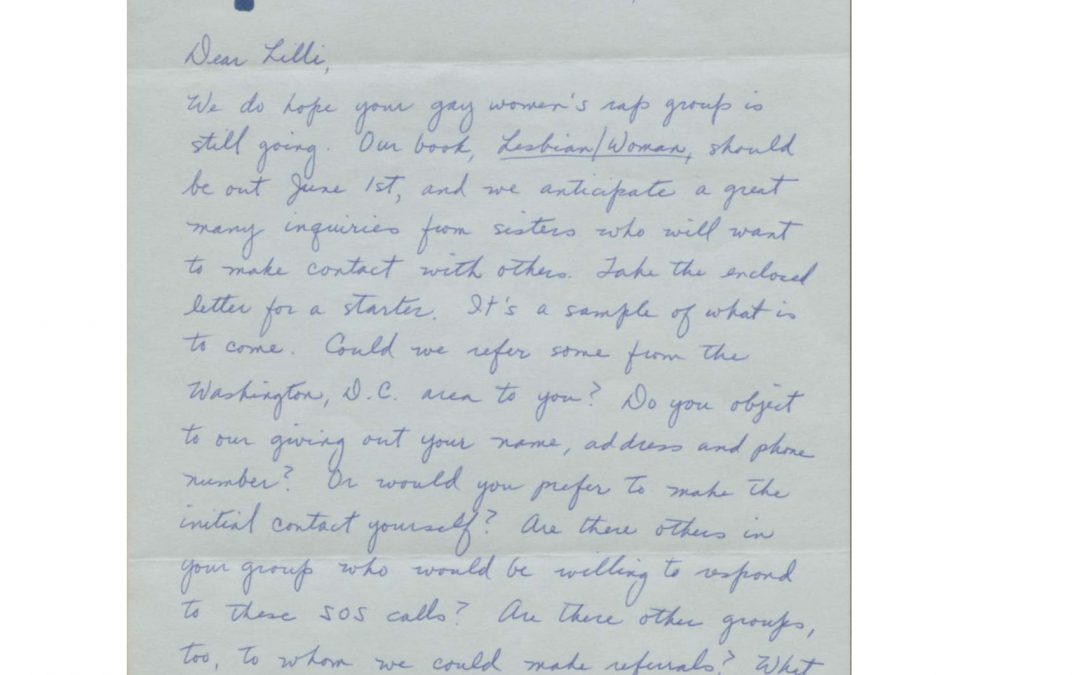 Dear Lilli,
We do hope your gay women's rap group is
still going. Our book, Lesbian/Woman, should
be out June 1st, and we anticipate a great
many inquiries from sisters who will want
to make contact with others. Take the enclosed
letter for a starter. It's a sample of what is
to come. Could we refer some from the
Washington, D.C. area to you? Do you object
to our giving out your name, address and phone
number? Or would you prefer to make the
initial contact yourself? Are there others in
your group who would be willing to respond
to these SOS calls? Are there other groups,
too, to whom we could make referrals? What